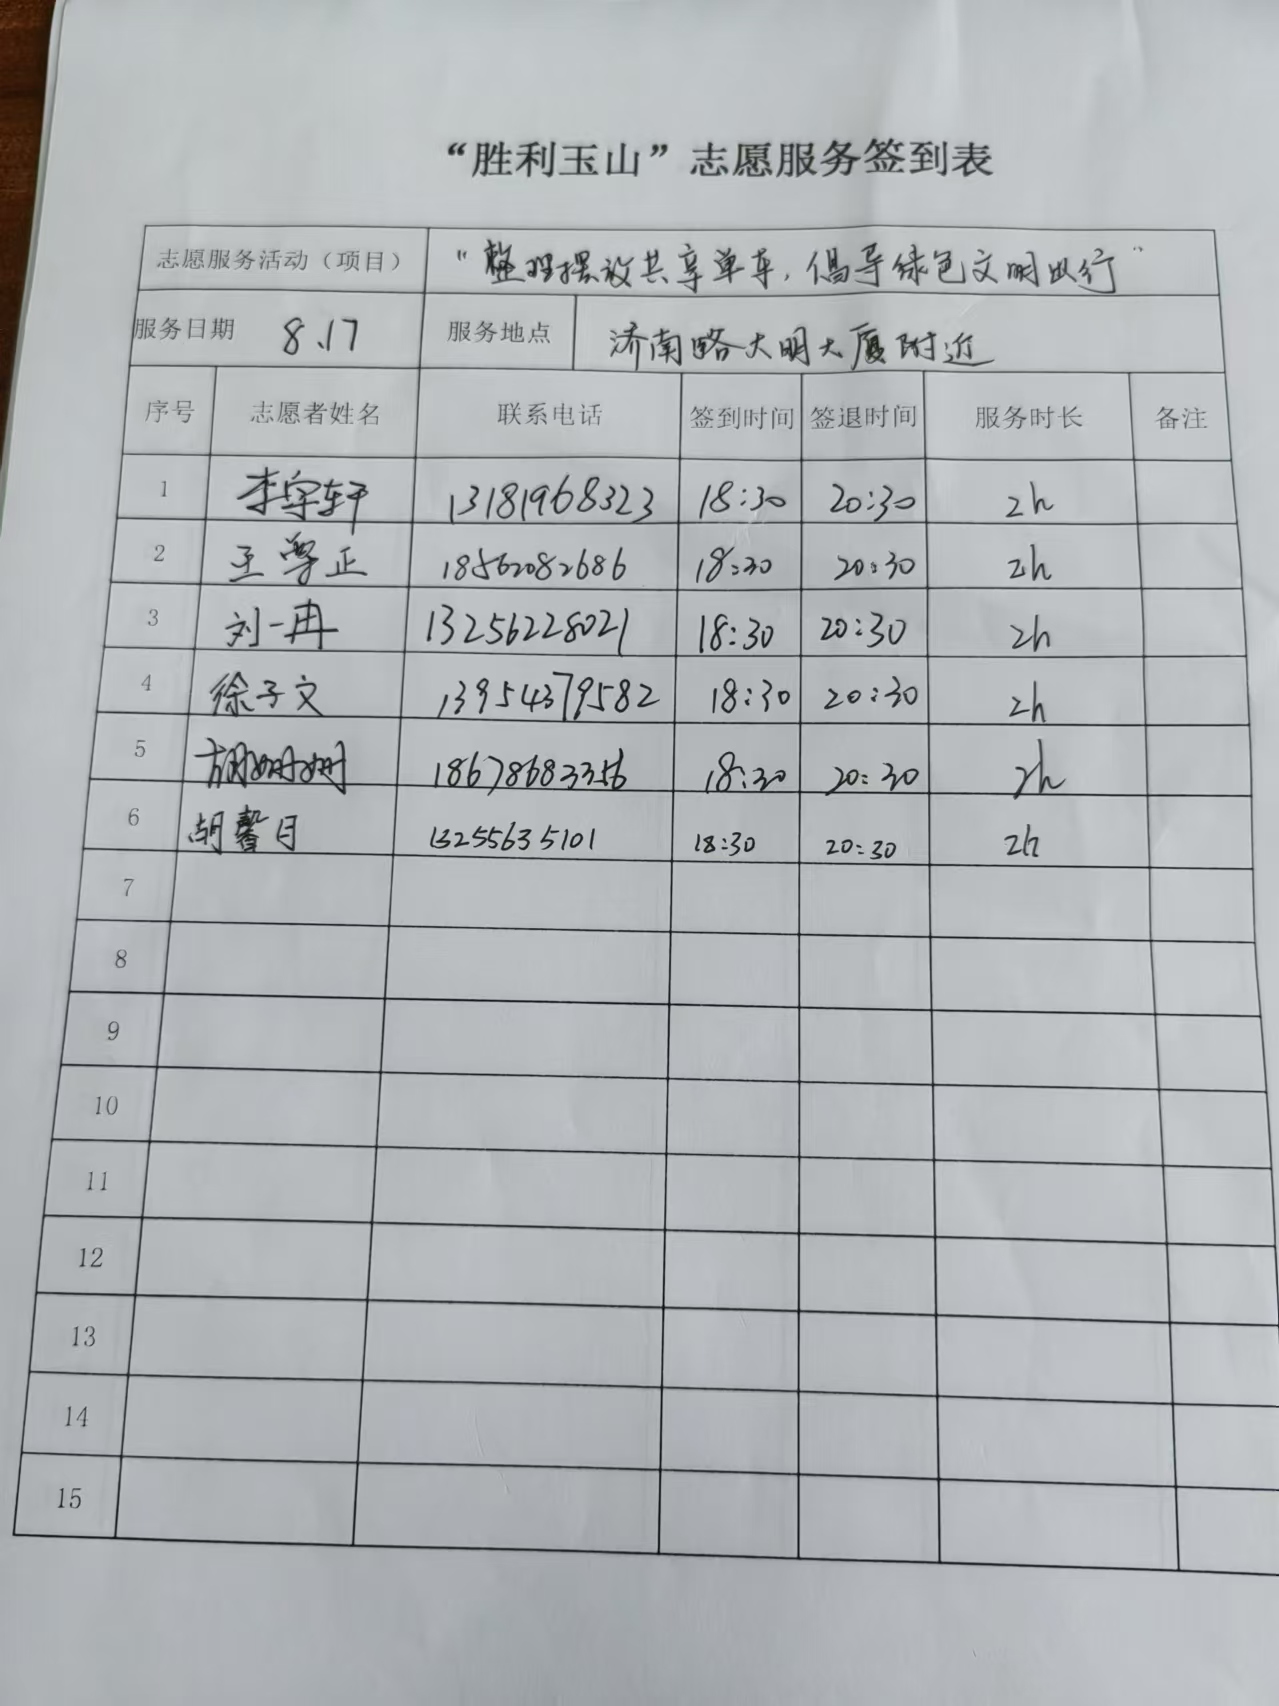 “胜利玉山”志愿服务签到表
志愿服务活动（项目） “整理摆放共享单车，倡导绿色文明出行”
服务日期 8.17 服务地点 济南路大明大厦附近
序号 志愿者姓名 联系电话 签到时间 签退时间 服务时长 备注
1 李宇轩 13181968323 18:30 20:30 2h
2 王尊正 18562082686 18:30 20:30 2h
3 刘一冉 13256228021 18:30 20:30 2h
4 徐子文 13954379582 18:30 20:30 2h
5 胡姗姗 18678683356 18:30 20:30 2h
6 胡馨月 13255635101 18:30 20:30 2h
7
8
9
10
11
12
13
14
15